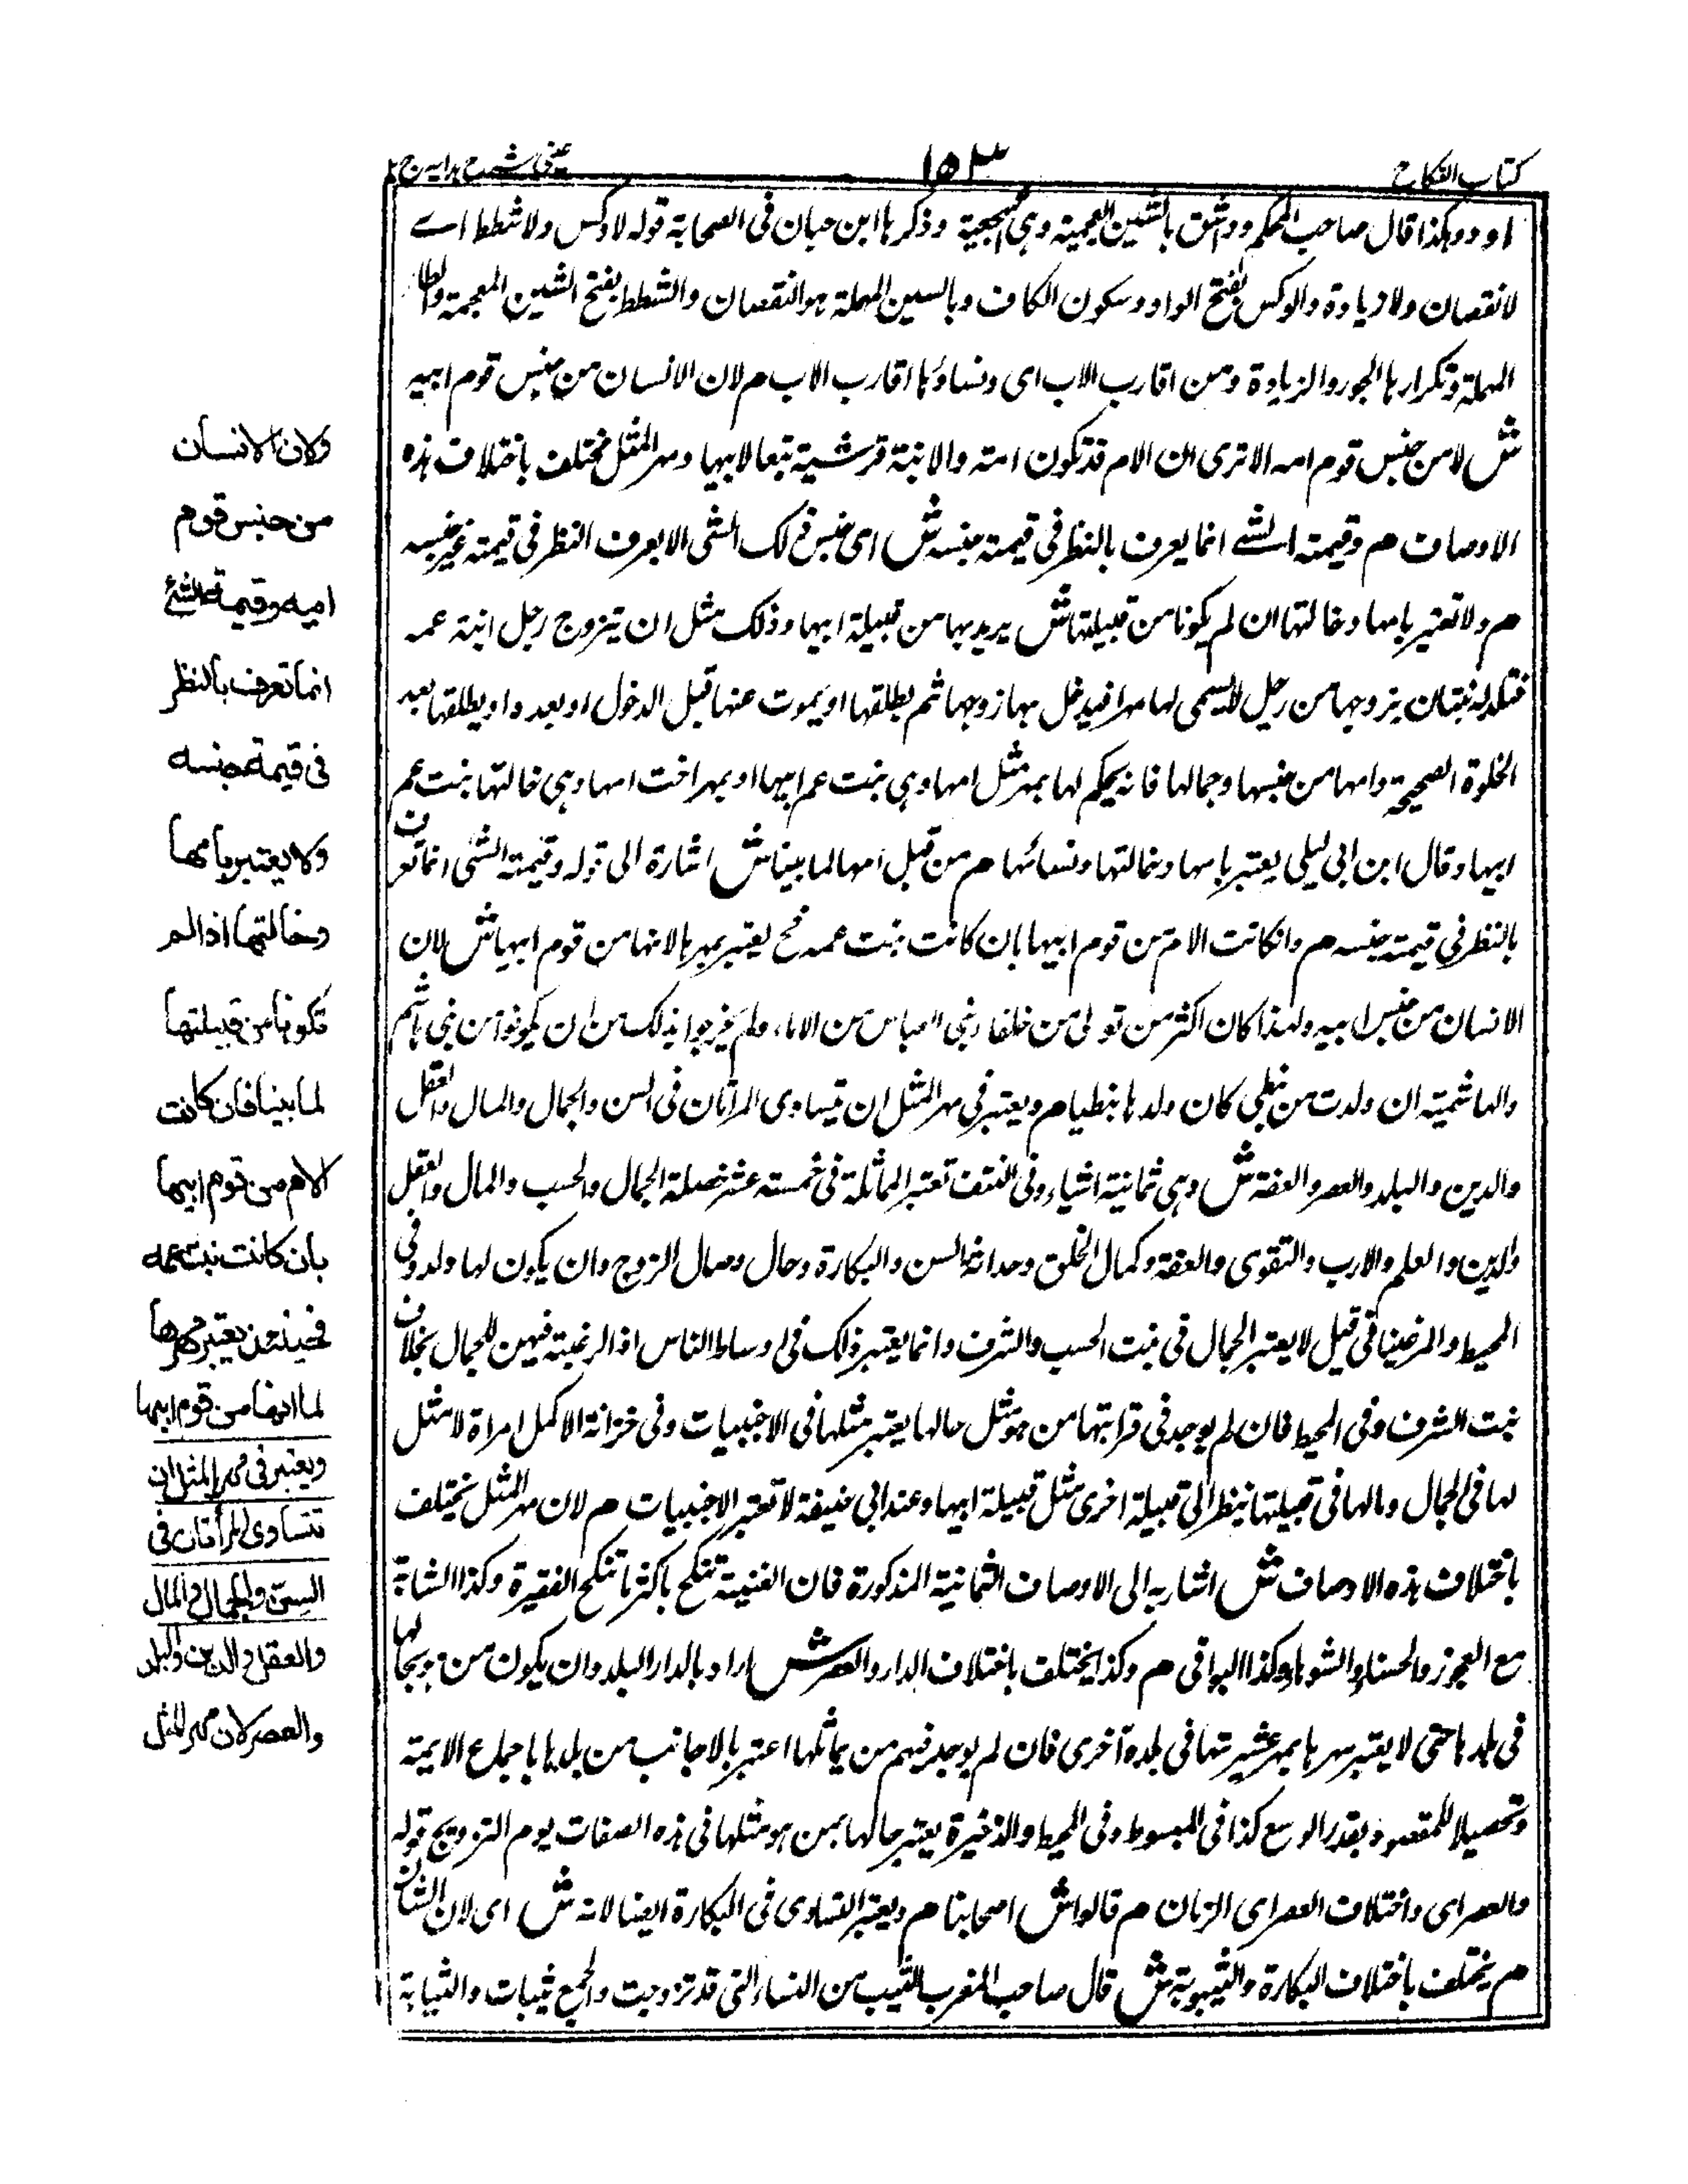 كتاب النكاح
١٥٣
عینی شرح ہدایہ ج ٢
او دو وهكذا قال صاحب المحكم وواشق بالشين المعجمة وهى وذكرها ابن حبان فى الصحابة قوله لا وكس ولا شطط اے
لا نقصان ولا زيادة والوكس بفتح الواو وسكون الكاف وبالسين المهملة هو النقصان والشطط بفتح الشين المعجمة والطاء
المهملة وتكرارها الجور والزيادة ومن اقارب الاب اى ونساؤها اقارب الاب م لان الانسان من جنس قوم ابيه
ش لا من جنس قوم امه الا ترى ان الام قد تكون امة والابنة قرشية تبعا لابيها ومهر المثل مختلف باختلاف هذه
الاوصاف م وقيمة الشے انما يعرف بالنظر فى قيمة جنسه ش اى جنس ذلك الشى لا يعرف النظر فى قيمة غير جنسه
م ولا تعتبر بامها وخالتها ان لم يكونا من قبيلتها ش يريد بها من قبيلة ابيها وذلك مثل ان يتزوج رجل ابنة عمه
فتلد له بنتان يزوجها من رجل لا يسمى لها مهرا فيدخل بها زوجها ثم يطلقها او يموت عنها قبل الدخول او بعده او يطلقها بعد
الخلوة الصحيحة وامها من جنسها وجمالها فانه يحكم لها بمهر مثل امها وهى بنت عم ابيها او بمهر اخت امها وهى خالتها بنت عم
ابيها وقال ابن ابى ليلى يعتبر بامها وخالتها ونسائها م من قبل امها لما بينا ش اشارة الى قوله وقيمة الشى انما تعرف
بالنظر فى قيمة جنسه م وان كانت الام من قوم ابيها بان كانت بنت عمه فح يعتبر بمهرها لانها من قوم ابيها ش لان
الانسان من جنس ابيه ولهذا كان اكثر من تولى من خلفاء بنى العباس من الاماء ولم يخرجوا بذلك من ان يكونوا من بنى هاشم
والهاشمية ان ولدت من نبطى كان ولدها نبطيا م ويعتبر فى مهر المثل ان يتساوى المرأتان فى السن والجمال والمال والعقل
والدين والبلد والعصر والعفة ش وهى ثمانية اشياء وفى النتف تعتبر المماثلة فى خمسة عشر خصلة الجمال والحسب والمال والعقل
والدين والعلم والادب والتقوى والعفة وكمال الخلق وحداثة السن والبكارة وحال وصال الزوج وان يكون لها ولد وفى
المحيط والمرغينانى قيل لا يعتبر الجمال فى بنت الحسب والشرف وانما يعتبر ذلك فى اوساط الناس اذ الرغبة فيهن للجمال بخلاف
بنت الشرف وفى المحيط فان لم يوجد فى قرابتها من هو مثل حالها يعتبر مثلها فى الاجنبيات وفى خزانة الاكمل امرأة لا مثل
لها فى الجمال ومالها فى قبيلتها ينظر الى قبيلة اخرى مثل قبيلة ابيها وعند ابى حنيفة لا تعتبر الاجنبيات م لان مهر المثل يختلف
باختلاف هذه الاوصاف ش اشار به الى الاوصاف الثمانية المذكورة فان الغنية تنكح باكثر ما تنكح الفقيرة وكذا الشابة
مع العجوز والحسناء والشوهاء وكذا البواقى م وكذا يختلف باختلاف الدار والعصر ش اراد بالدار البلد وان يكون من زوجها لها
فى بلدها حتى لا يعتبر مهرها بمهر عشيرتها فى بلدة اخرى فان لم يوجد فيهم من يماثلها اعتبر بالاجانب من بلدها باجماع الايمة
وتحصيلا للمقصود بقدر الوسع كذا فى المبسوط وفى المحيط والذخيرة يعتبر حالها بمن هو مثلها فى هذه الصفات يوم التزويج قوله
والعصر اى واختلاف العصر اى الزمان م قالوا ش اصحابنا م ويعتبر التساوى فى البكارة ايضا لانه ش اى لان الشان
م يختلف باختلاف البكارة والثيوبة ش قال صاحب المغرب الثيب من النساء التى قد تزوجت والجمع ثيبات والثيابة
ولان الانسان
من جنس قوم
ابيه وقيمة الشئ
انما تعرف بالنظر
فى قيمة جنسه
ولا يعتبر بامها
وخالتها اذا لم
تكونا من قبيلتها
لما بينا فان كانت
الام من قوم ابيها
بان كانت بنت عمه
فحينئذ يعتبر بمهرها
لما انها من قوم ابيها
ويعتبر فى مهر المثل ان
تتساوى المرأتان فى
السن والجمال والمال
والعقل والدين والبلد
والعصر لان مهر المثل